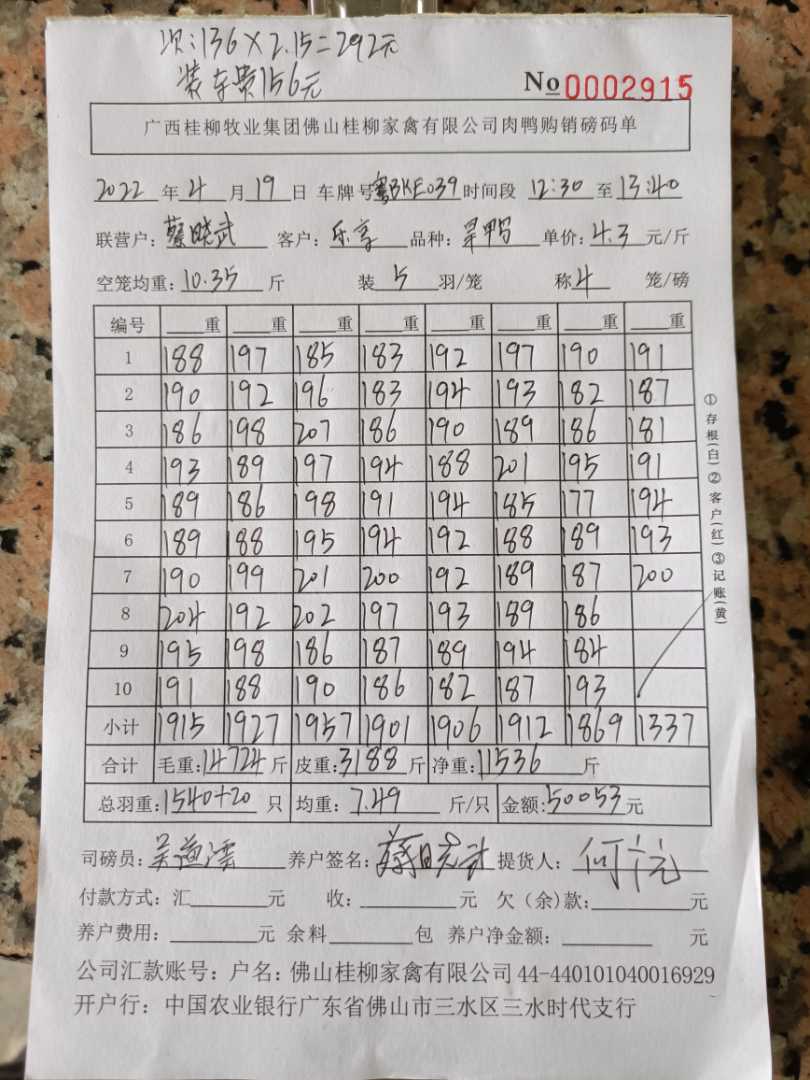 次:136×2.15=292元
装车费156元
No 0002915
广西桂柳牧业集团佛山桂柳家禽有限公司肉鸭购销磅码单
2022年4月19日 车牌号粤BKE039时间段 12:30至13:40
联营户:蔡晓武 客户:乐享 品种:旱鸭 单价:4.3元/斤
空笼均重:10.35斤 装5羽/笼 称4笼/磅
编号 重 重 重 重 重 重 重 重
1 188 197 185 183 192 197 190 191
2 190 192 196 183 194 193 182 187
3 186 198 207 186 190 189 186 181
4 193 189 197 194 188 201 195 191
5 189 186 198 191 194 185 177 194
6 189 188 195 194 192 188 189 193
7 190 199 201 200 192 189 187 200
8 204 192 202 197 193 189 186
9 195 198 186 187 189 194 184
10 191 188 190 186 182 187 193
小计 1915 1927 1957 1901 1906 1912 1869 1337
合计 毛重:14724斤 皮重:3188斤 净重:11536斤
总羽重:1540+20只 均重:7.49斤/只 金额:50053元
司磅员: 养户签名:蔡晓武 提货人:
付款方式:汇 元 收: 元 欠(余)款: 元
养户费用: 元 余料 包 养户净金额: 元
公司汇款账号:户名:佛山桂柳家禽有限公司44-440101040016929
开户行:中国农业银行广东省佛山市三水区三水时代支行
①存根(白)②客户(红)③记账(黄)